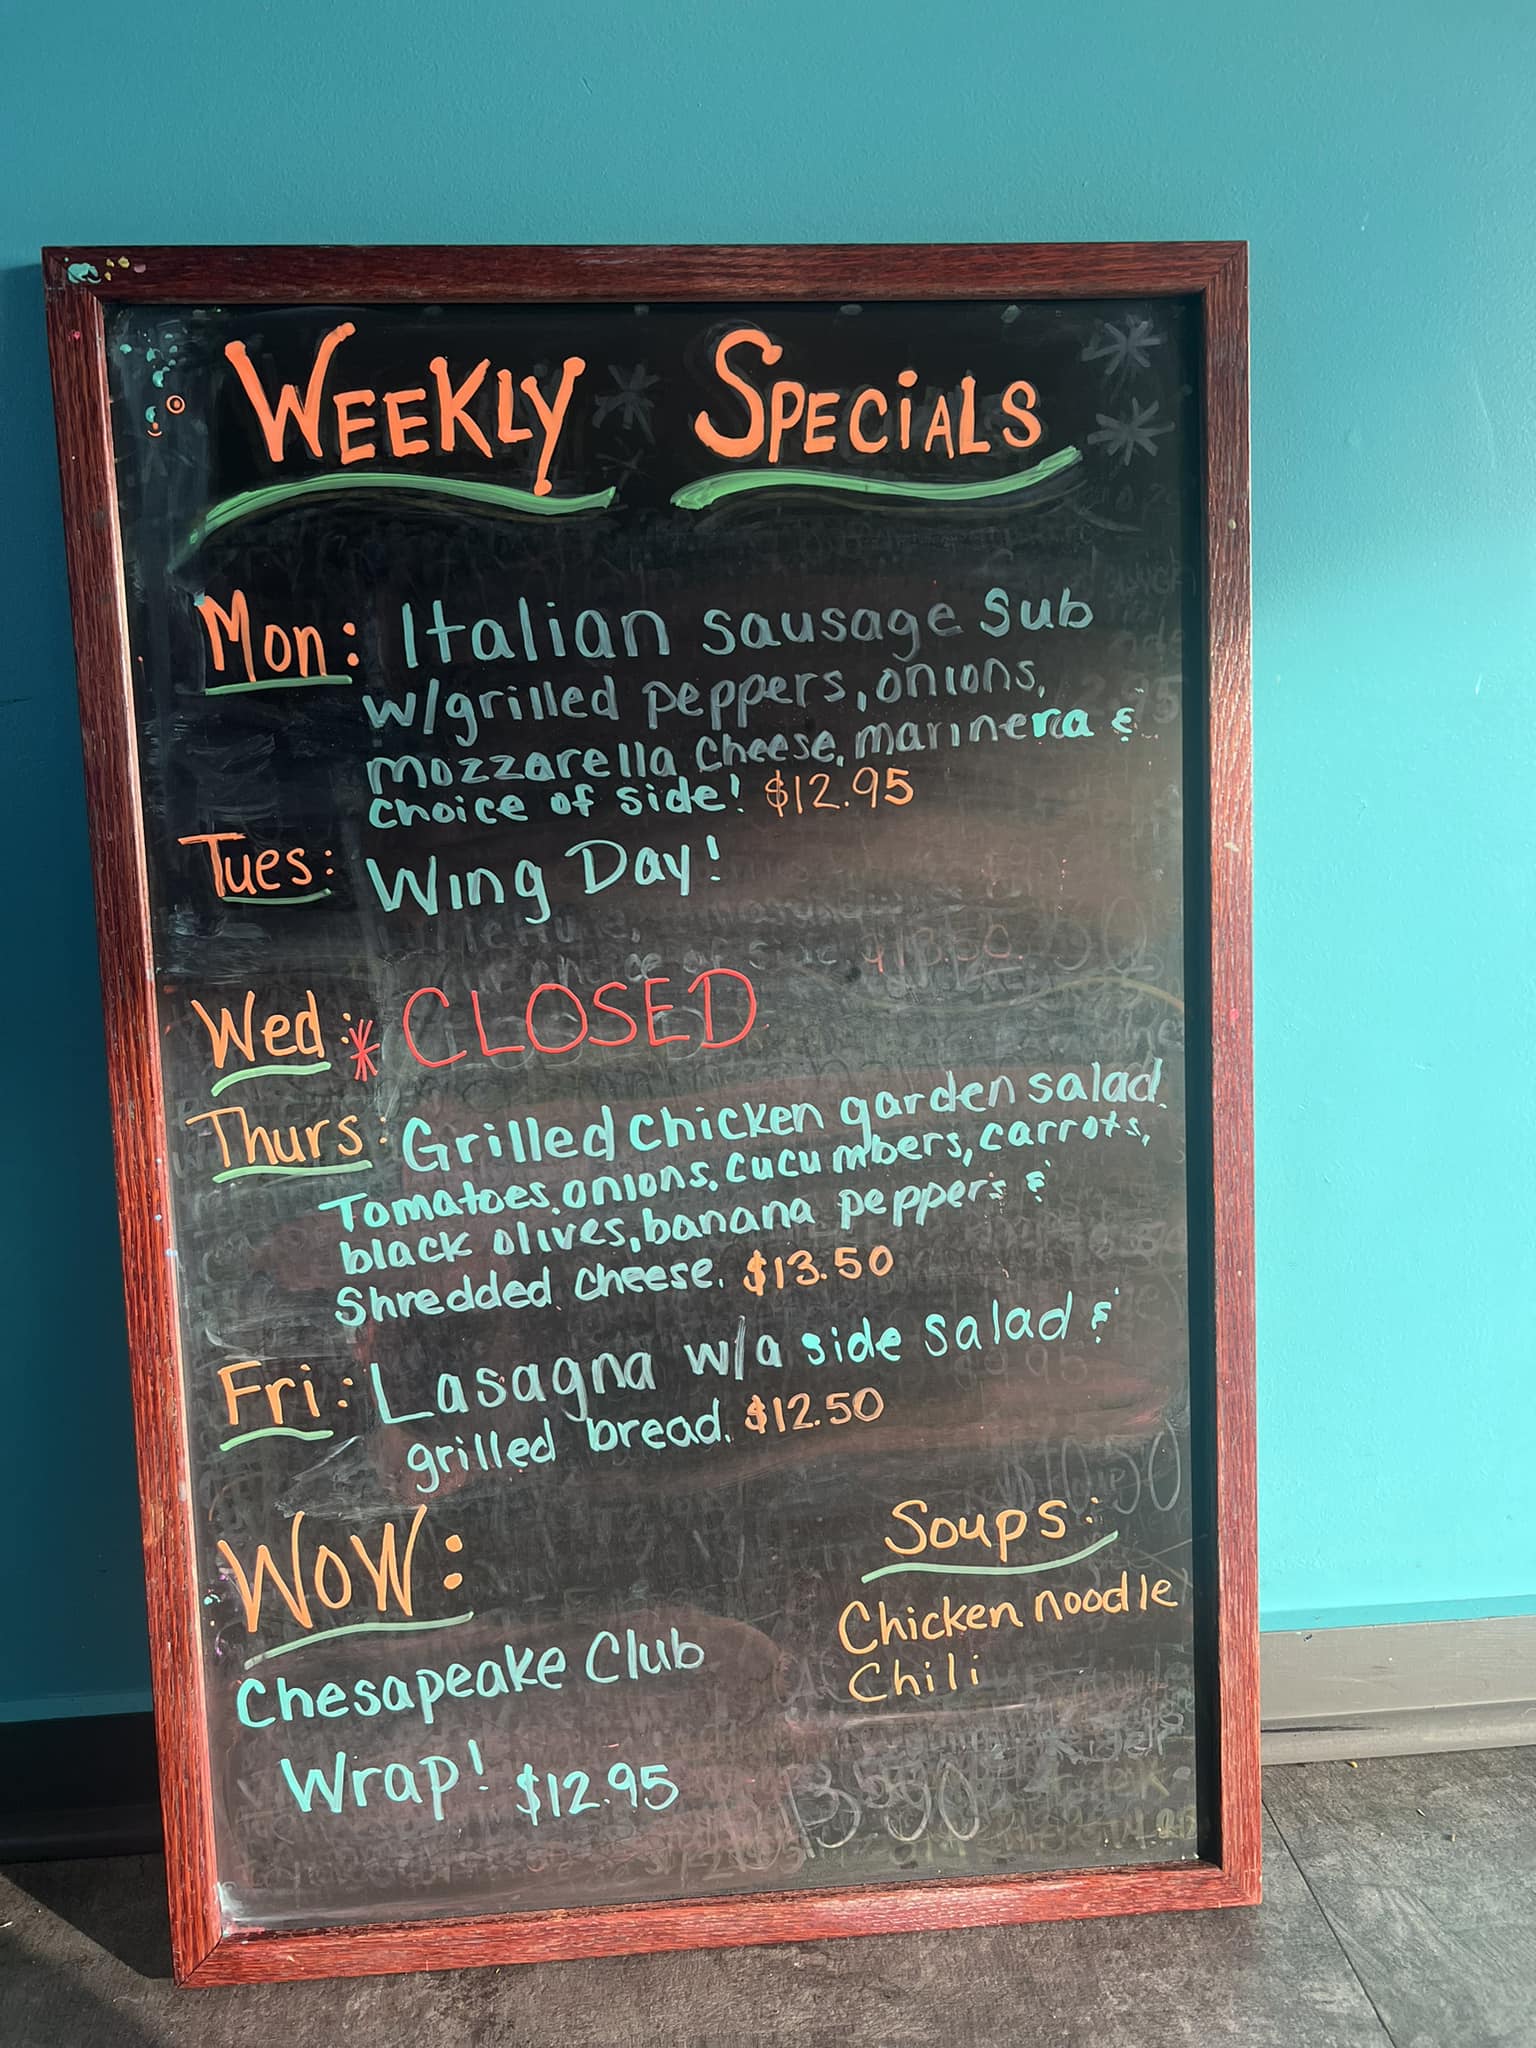 WEEKLY SPECIALS
Mon: Italian sausage sub
w/grilled peppers, onions,
mozzarella cheese, marinera &
choice of side! $12.95
Tues: Wing Day!
Wed: * CLOSED
Thurs: Grilled chicken garden salad
Tomatoes, onions, cucumbers, carrots,
black olives, banana peppers &
shredded cheese. $13.50
Fri: Lasagna w/a side salad &
grilled bread. $12.50
WOW:
Chesapeake Club
Wrap! $12.95
Soups:
Chicken noodle
Chili